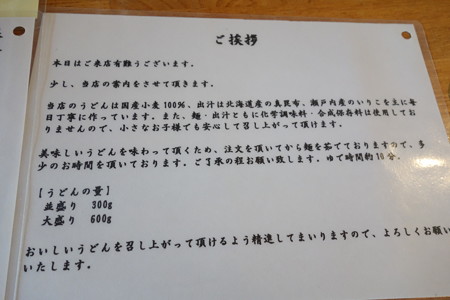 ご挨拶
本日はご来店有難うございます。
少し、当店の案内をさせて頂きます。
当店のうどんは国産小麦100%、出汁は北海道産の真昆布、瀬戸内産のいりこを主に毎
日丁寧に作っています。また、麺・出汁ともに化学調味料・合成保存料は使用してお
りませんので、小さなお子様でも安心して召し上がって頂けます。
美味しいうどんを味わって頂くため、注文を頂いてから麺を茹でておりますので、多
少のお時間を頂いております。ご了承の程お願い致します。ゆで時間約10分。
【うどんの量】
並盛り 300g
大盛り 600g
おいしいうどんを召し上がって頂けるよう精進してまいりますので、よろしくお願い
いたします。